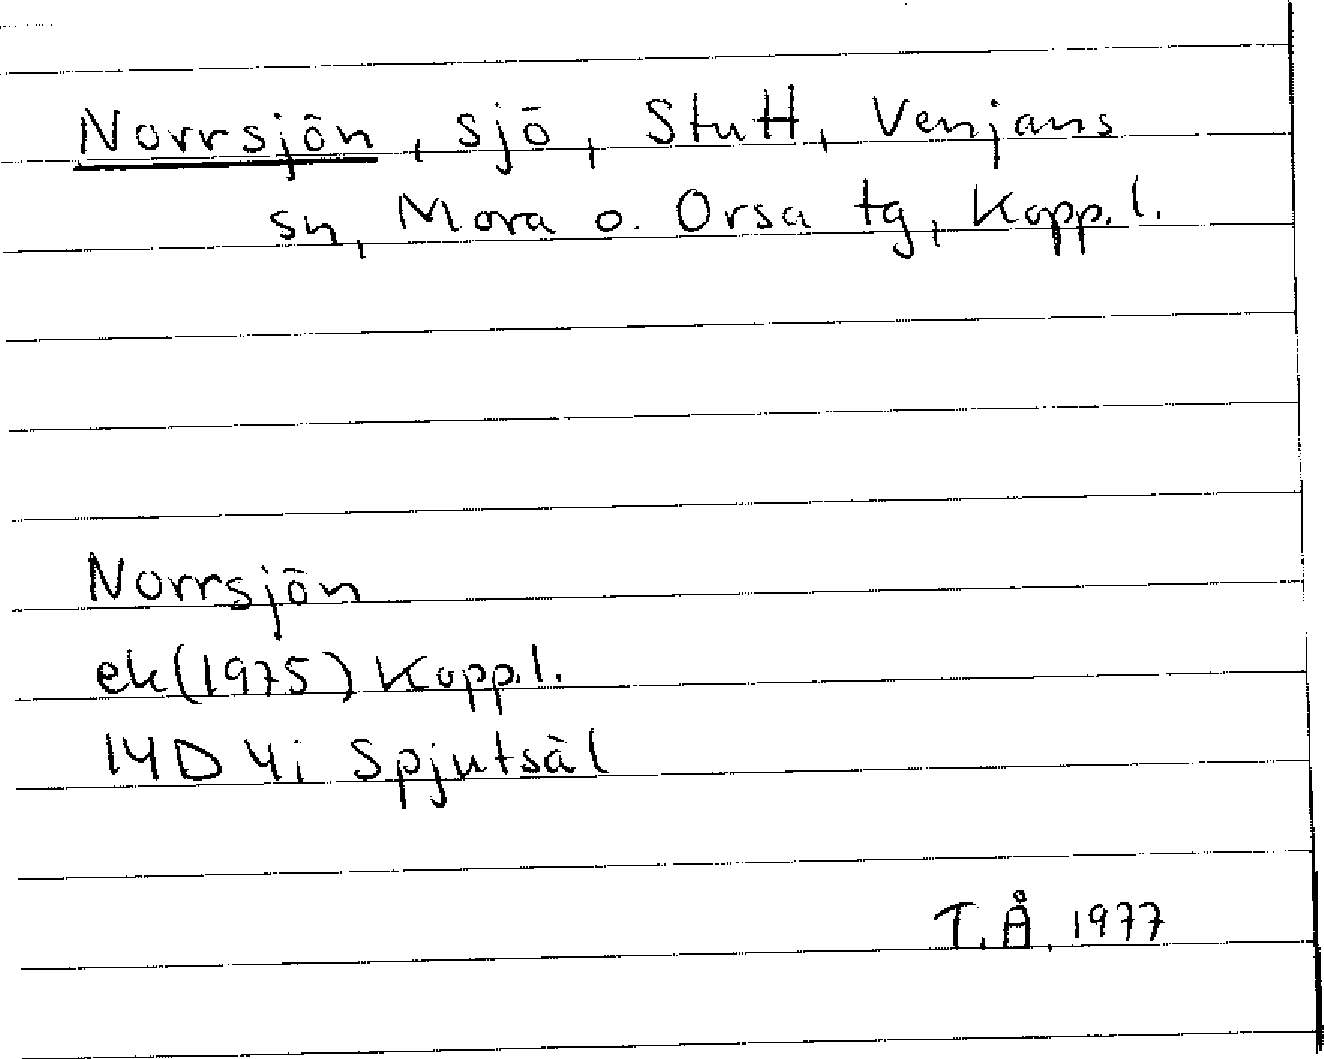 Norrsjön, sjö, Stutt, Venjans
sn, Mora o. Orsa tg, Kopp. l.
Norrsjön
ek (1975) Kopp. l.
14D 4i Spjutsäl
T. Å. 1977